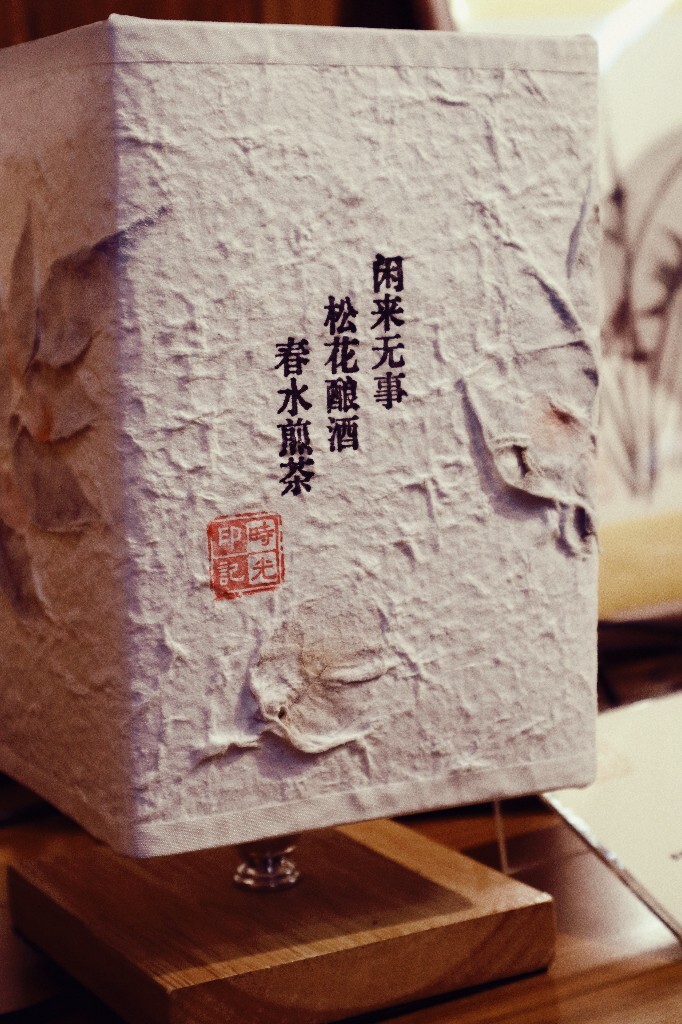 闲来无事
松花酿酒
春水煎茶
時光
印記